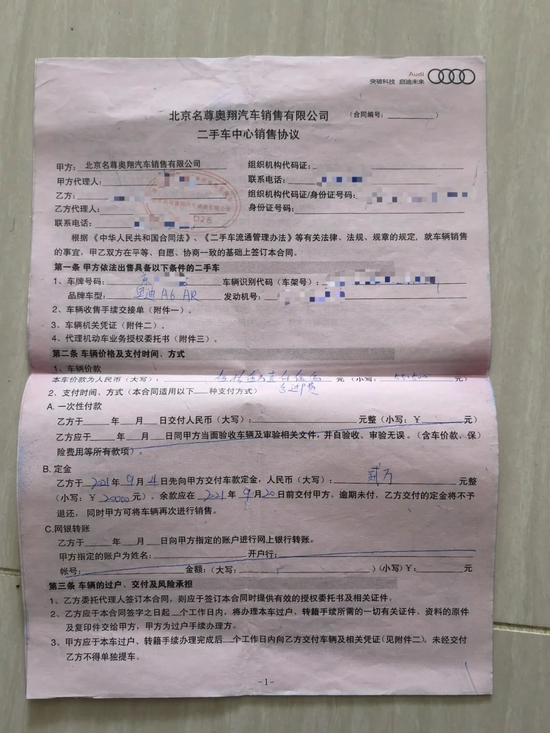 Audi
突破科技 启迪未来
北京名尊奥翔汽车销售有限公司
(合同编号:
二手车中心销售协议
甲方: 北京名尊奥翔汽车销售有限公司 组织机构代码证:
甲方代理人: 联系电话:
乙方: 组织机构代码证/身份证号码:
乙方代理人: 身份证号码:
联系电话:
根据《中华人民共和国合同法》、《二手车流通管理办法》等有关法律、法规、规章的规定, 就车辆销售
的事宜, 甲乙双方在平等、自愿、协商一致的基础上签订本合同。
第一条 甲方依法出售具备以下条件的二手车
1、车牌号码: 京 车辆识别代码(车架号):
品牌车型: 奥迪 A6 AR 发动机号:
2、车辆收售手续交接单(附件一)。
3、车辆相关凭证(附件二)。
4、代理机动车业务授权委托书(附件三)。
第二条 车辆价格及支付时间、方式
1、车辆价款
本车价款为人民币(大写): 元(小写:
2、支付时间、方式(本合同适用以下 种支付方式) 含过户费
A. 一次性付款
乙方于 年 月 日交付人民币(大写): 元整(小写: ¥ 元)
乙方应于 年 月 日同甲方当面验收车辆及审验相关文件, 并自验收、审验无误。(含车价款、保
险费用等所有款项)。
B. 定金
乙方于 2021 年 9 月 4 日先向甲方交付车款定金, 人民币(大写): 贰万 元整
(小写: ¥ 20000 元), 余款应在 2021 年 9 月 20 日前交付甲方, 逾期未付, 乙方交付的定金将不予
退还, 同时甲方可将车辆再次进行销售。
C.网银转账
乙方于 年 月 日向甲方指定的账户进行网上银行转账。
甲方指定的账户为姓名: 开户行:
帐号: 金额: (大写: )(小写): ¥: 元
第三条 车辆的过户、交付及风险承担
1、乙方委托代理人签订本合同, 则应于签订本合同时提供有效的授权委托书及相关证件。
2、乙方应于本合同签字之日起 个工作日内, 将办理本车过户、转籍手续所需的一切有关证件、资料的原件
及复印件交给甲方, 甲方为过户手续办理方。
3、甲方应于本车过户、转籍手续办理完成后 个工作日内向乙方交付车辆及相关凭证(见附件二), 未经交付
乙方不得单独提车。
- 1 -